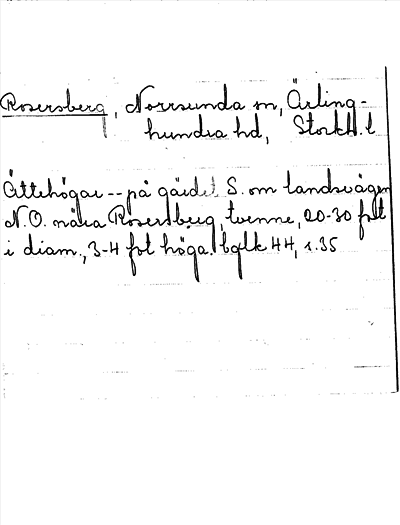 Rosersberg, Norrsunda sn, Ärling-
hundra hd, Stockh. l
Ättehögar -- på gärdet S. om landsvägen
N.O. nära Rosersberg, tvenne, 20-30 fot
i diam., 3-4 fot höga. bglk 44, s. 35